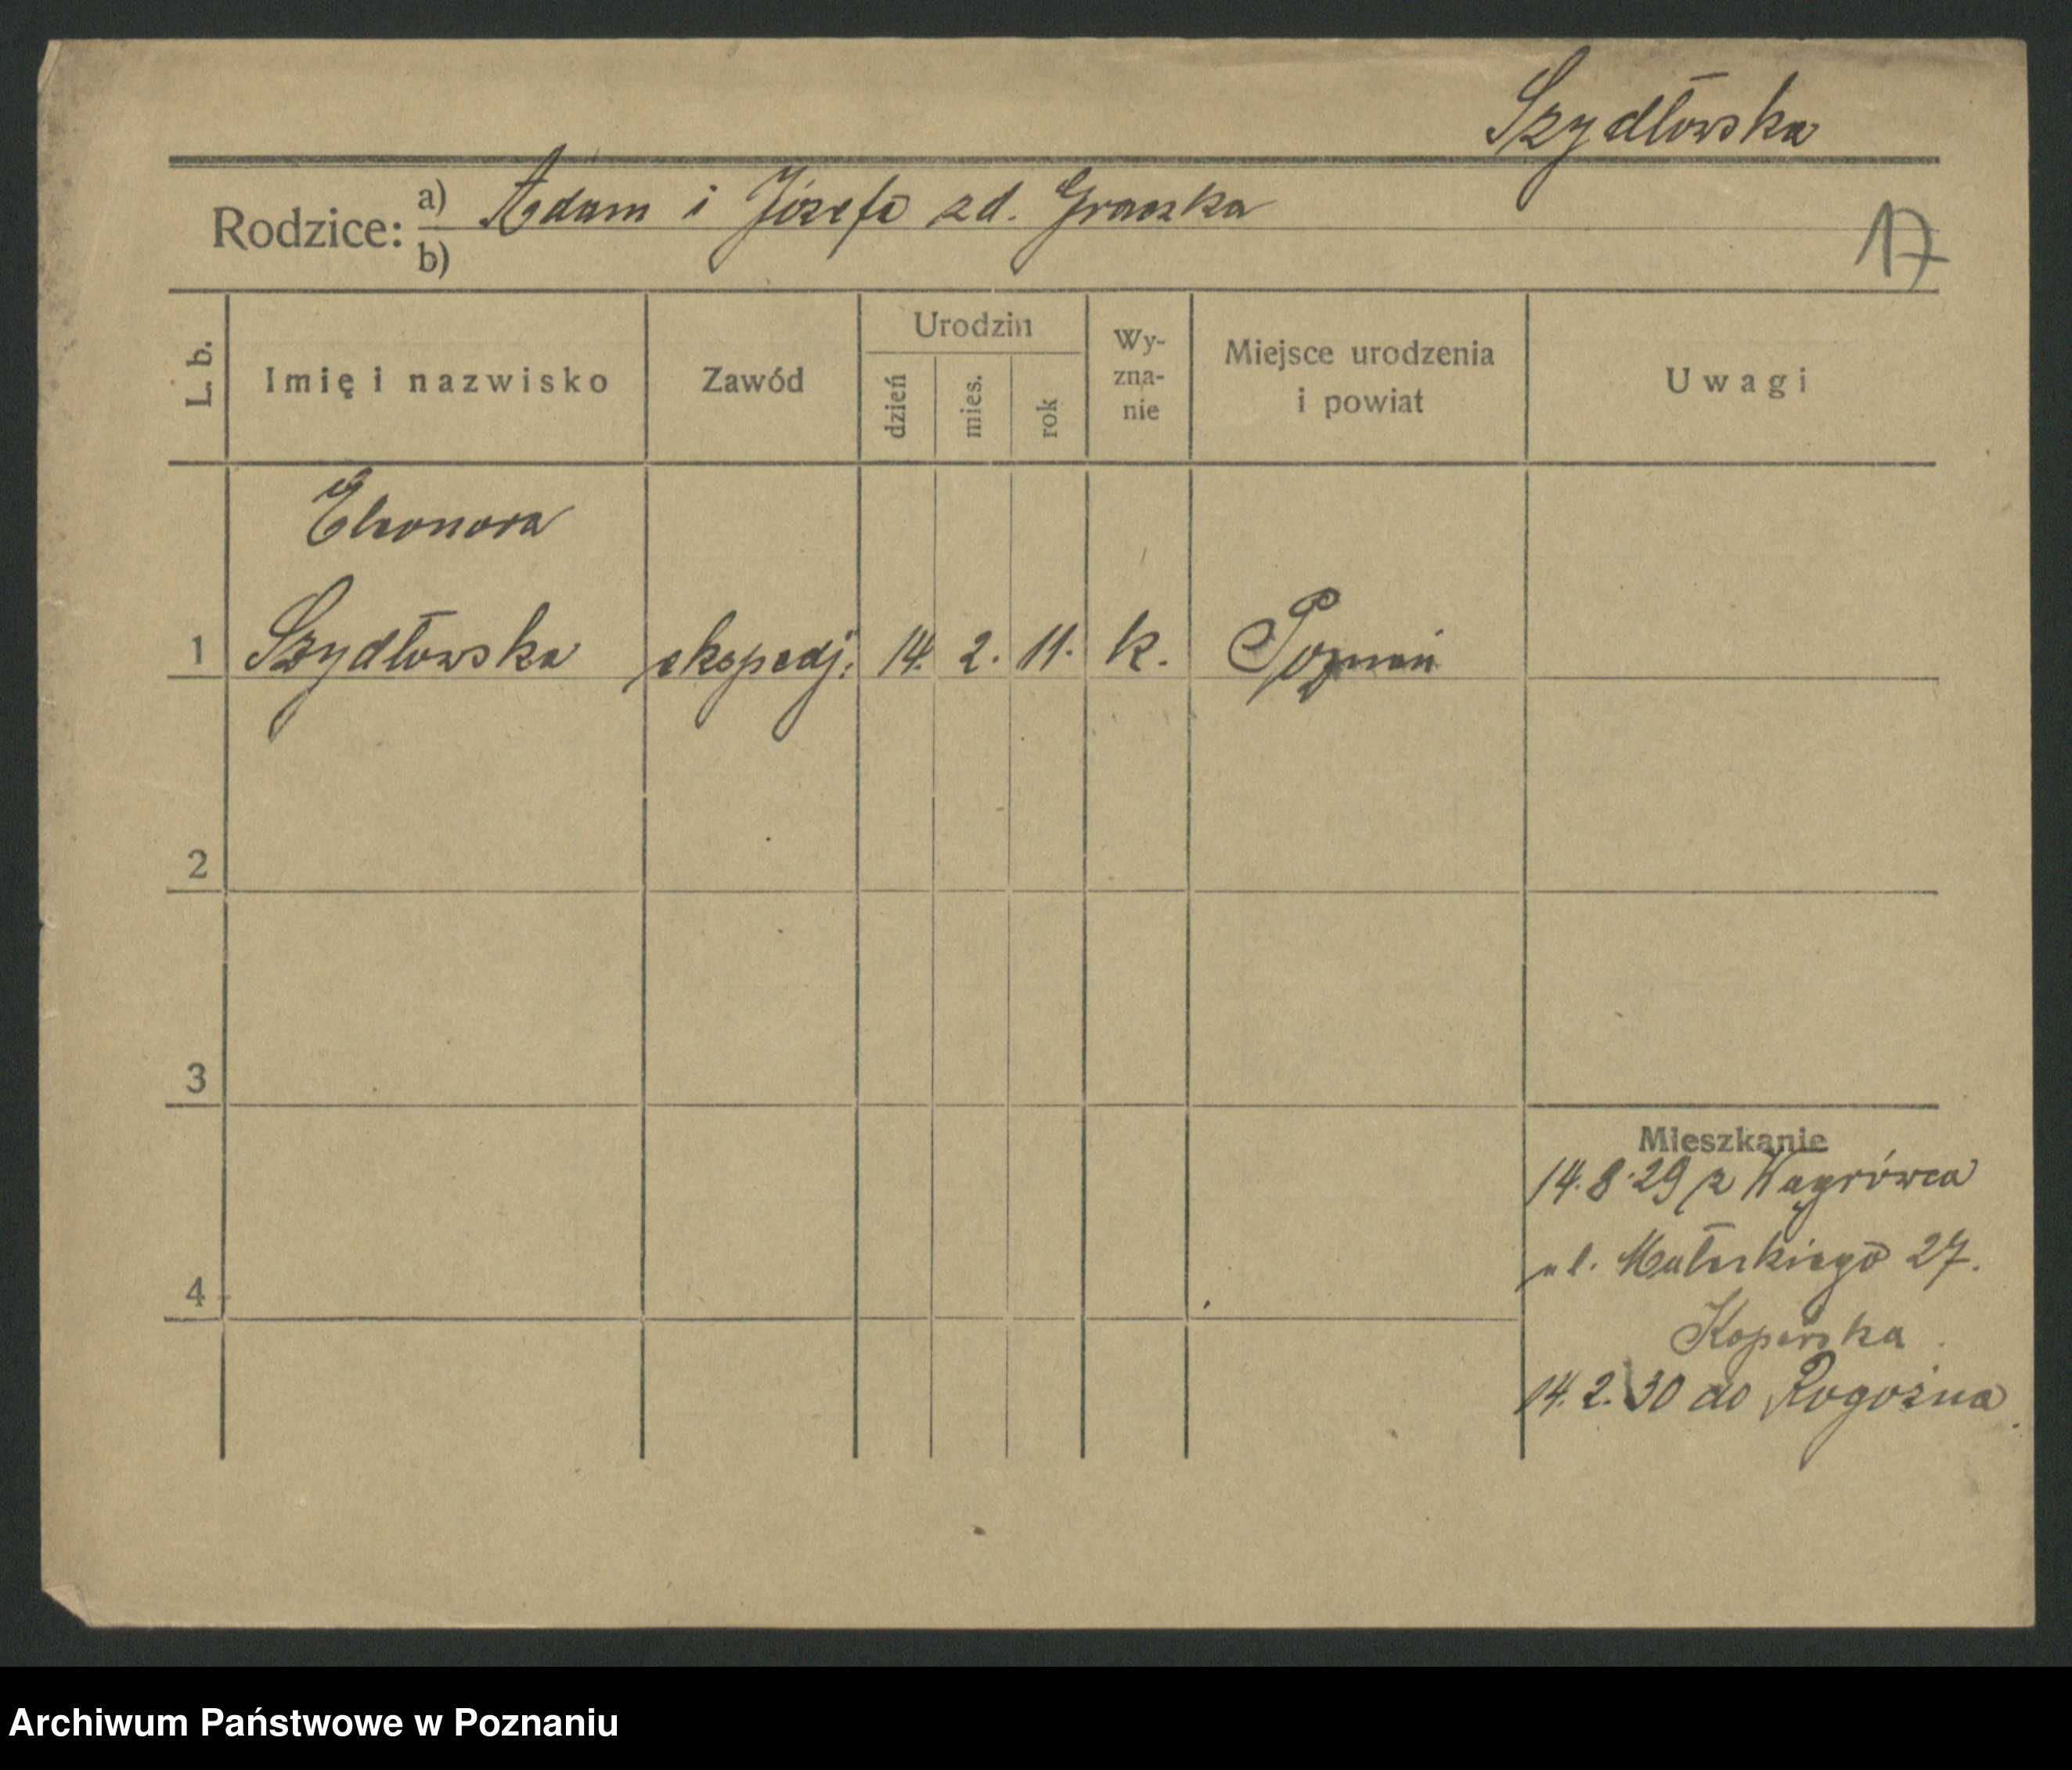 Szydłowska
Rodzice: a) Adam i Józefa zd. Graczka
b)
17
L. b.
Imię i nazwisko
Zawód
Urodzin
dzień
mies.
rok
Wy-
zna-
nie
Miejsce urodzenia
i powiat
Uwagi
Eleonora
1 Szydłowska ekspedj. 14. 2. 11. k. Poznań
2
3
4
Mieszkanie
14.8.29 z Wągrówca
ul. Małeckiego 27.
Koperska
14.2.30 do Rogoźna.
Archiwum Państwowe w Poznaniu